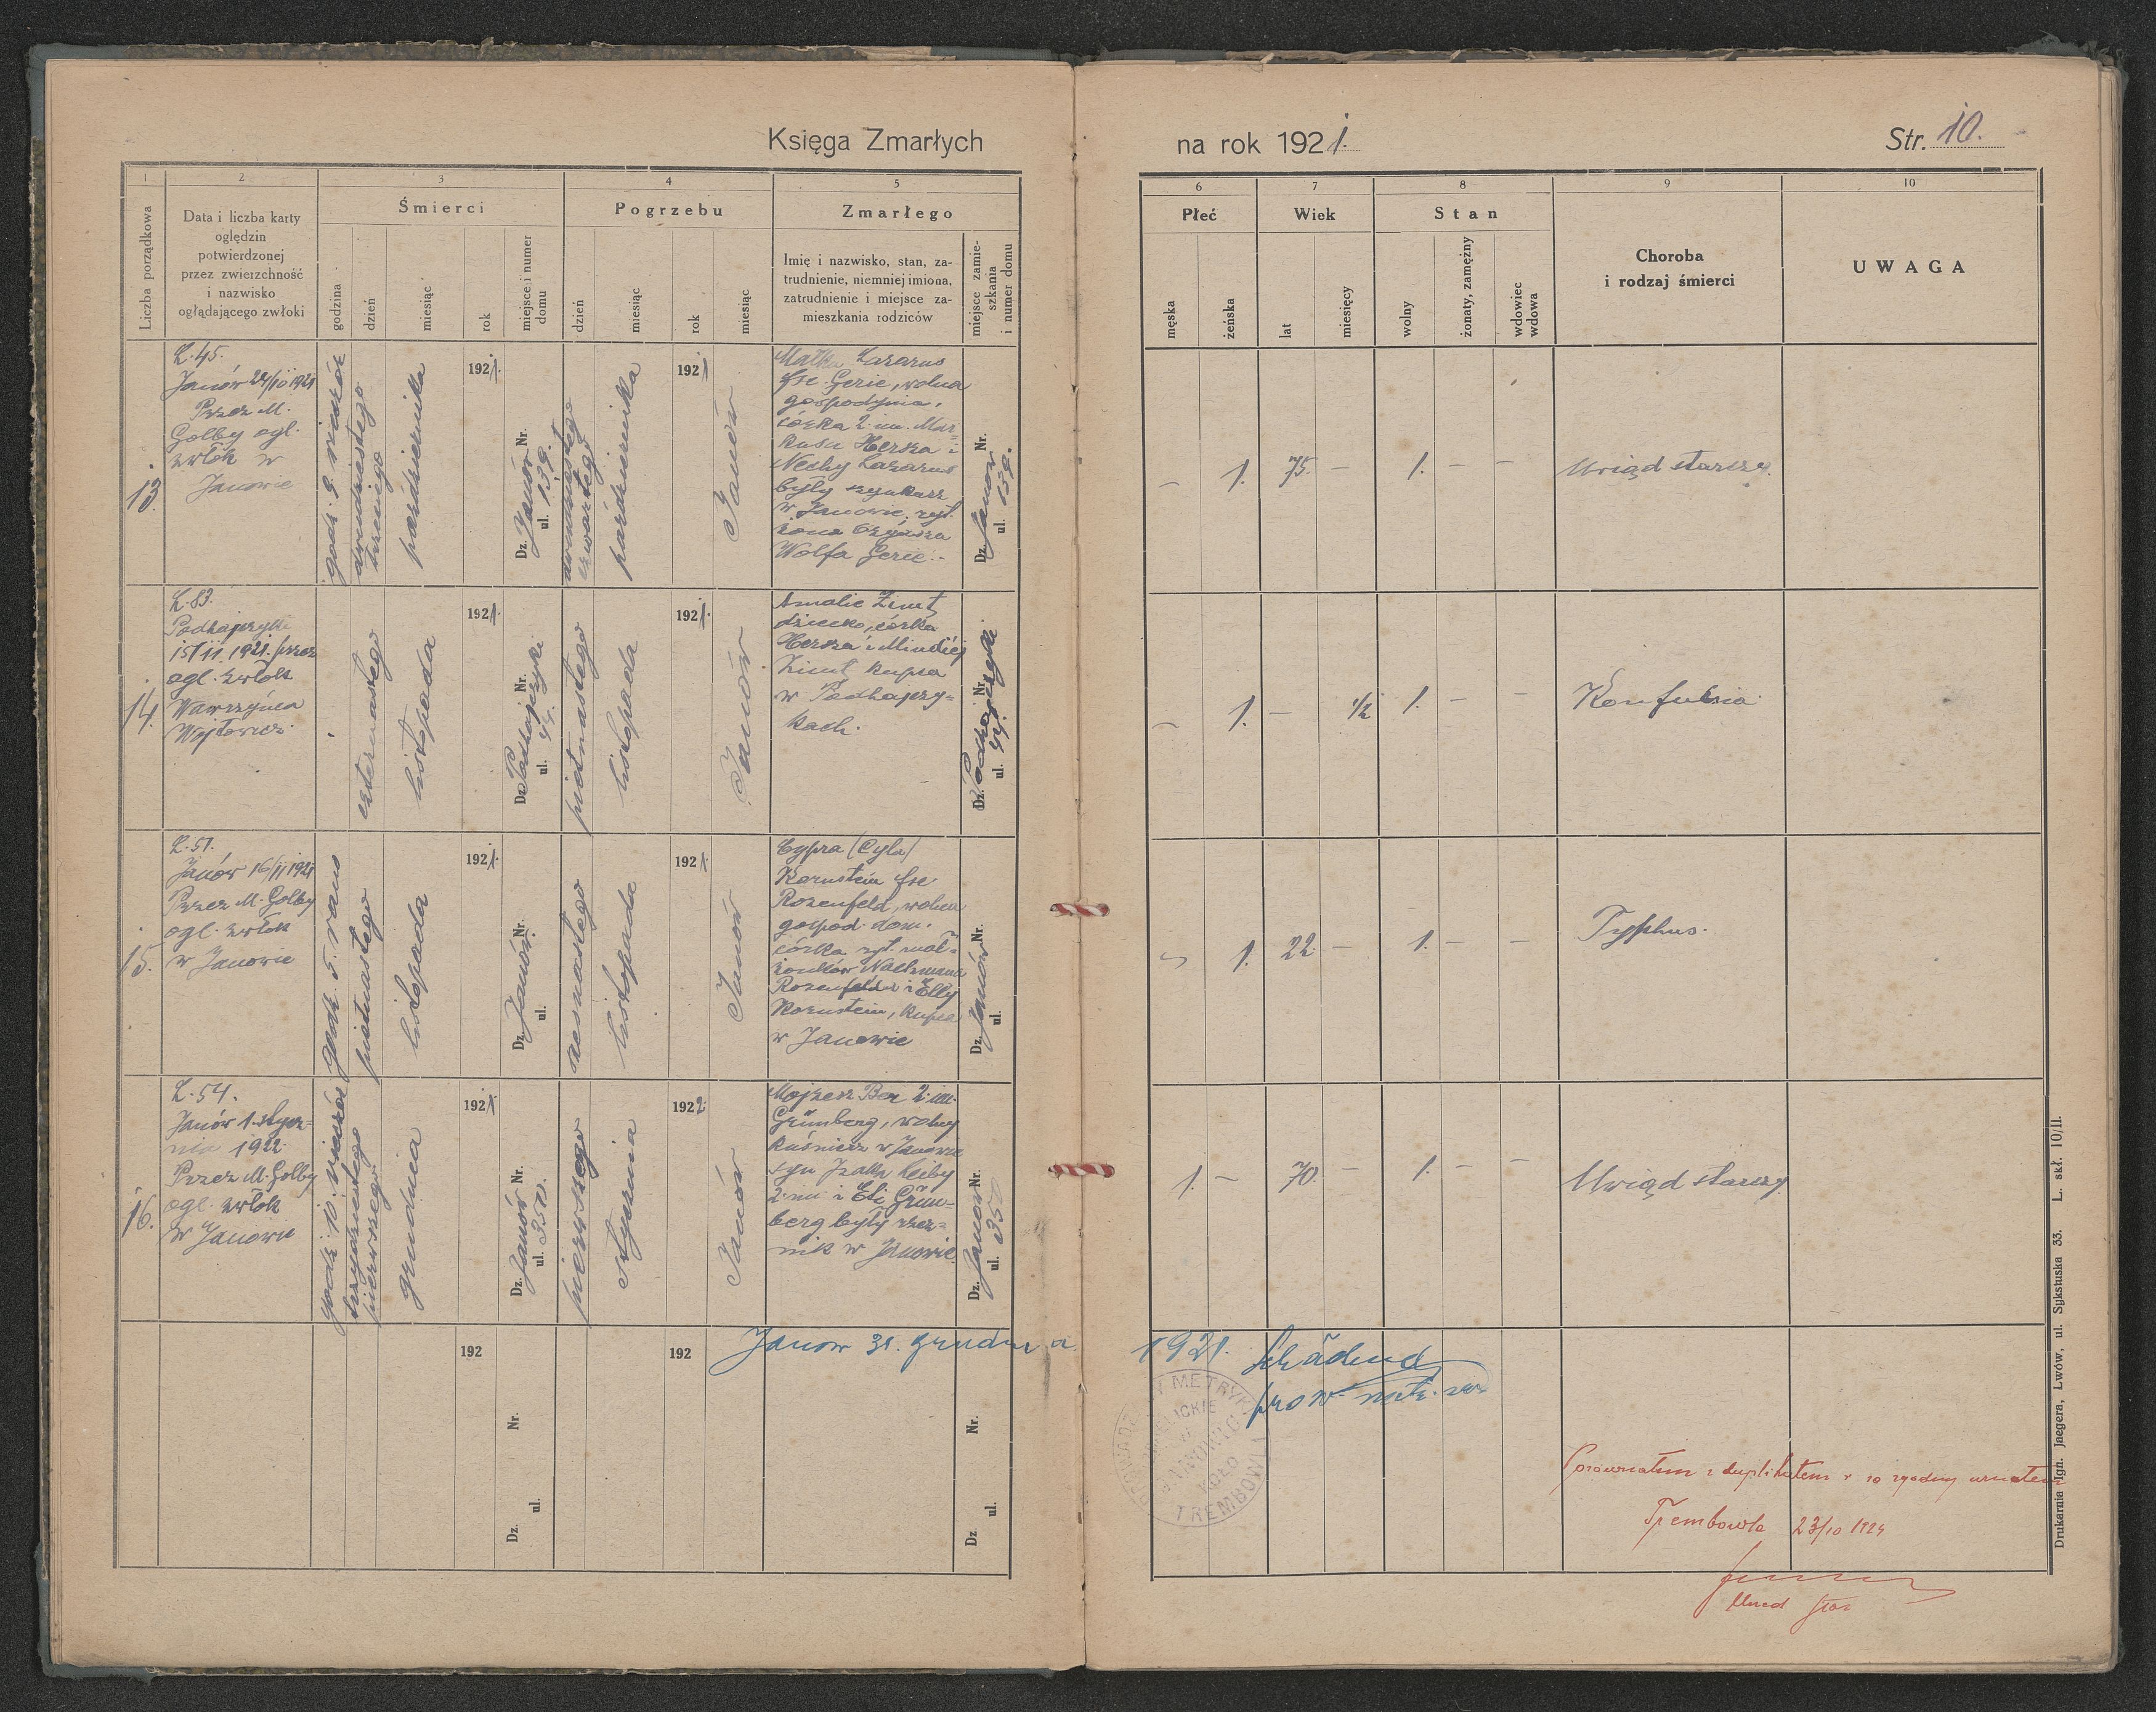 Księga Zmarłych
na rok 1921.
Str. 10.
1
2
3
4
5
6
7
8
9
10
Liczba porządkowa
Data i liczba karty
oględzin
potwierdzonej
przez zwierzchność
i nazwisko
oglądającego zwłoki
Śmierci
godzina
dzień
miesiąc
rok
miejsce i numer
domu
Pogrzebu
dzień
miesiąc
rok
miesiąc
Zmarłego
Imię i nazwisko, stan, za-
trudnienie, niemniej imiona,
zatrudnienie i miejsce za-
mieszkania rodziców
miejsce zamie-
szkania
i numer domu
Płeć
męska
żeńska
Wiek
lat
miesięcy
Stan
wolny
żonaty, zamężny
wdowiec
wdowa
Choroba
i rodzaj śmierci
UWAGA
13.
L. 45.
Janów 24/10 1921
Przez M.
Golby ogl.
zwłok w
Janowie
godz. 9. wieczór
dwudziestego
trzeciego
października
1921.
Dz. Janów Nr.
ul. 139.
dwudziestego
czwartego
października
1921
Janów
Malka Lazarus
fse Gerie, wolna
gospodyni,
córka 2 im. Mar-
kusa Herska i
Nechy Lazarus
były szynkarz
w Janowie, ryt.
żona
Wolfa Gerie.-
Dz. Janów Nr.
ul. 139.
– 1. 75. – 1. – –
Uwiąd starczy.
14.
L. 83.
Podhajczyki
15/11. 1921. przez
ogl. zwłok
Wawrzyńca
Wojtowicz.
czternastego
listopada
1921.
Dz. Podhajczyki Nr.
ul. 44.
piętnastego
listopada
1921.
Janów
Amalie Zimt
dziecko, córka
Herska i Mindli
Zimt kupca
w Podhajczy=
kach.
Dz. Podhajczyki Nr.
ul. 44.
– 1. – 1/2 1. – –
Konfulsia
15.
L. 51.
Janów 16/11 1921
Przez M. Golby
ogl. zwłok
w Janowie
godz. 5. rano
piętnastego
listopada
1921.
Dz. Janów Nr.
ul.
szesnastego
listopada
1921.
Janów
Cypra (Cyla)
Kornstein fse
Rozenfeld, wolna
gospod. dom.
córka ryt. mał=
żonków Nachmana
Rozenfelda i Elly
Kornstein, kupca
w Janowie
Dz. Janów Nr.
ul.
– 1. 22 – 1. – –
Typhus.
16.
L. 54.
Janów 1. stycz=
nia 1922
Przez M. Golby
ogl. zwłok
w Janowie
godz. 10. wieczór
trzydziestego
pierwszego
grudnia
1921.
Dz. Janów Nr.
ul. 350.
pierwszego
stycznia
1922.
Janów
Mojżesz Ber 2 im.
Grünberg, wolny
kuśnierz w Janowie
syn Izaka Leiby
2 im i Eti Grün=
berg były rzez=
nik w Janowie
Dz. Janów Nr.
ul. 350
1. – 70. – 1. – –
Uwiąd starczy
192
Dz. Nr.
ul.
192
Dz. Nr.
ul.
Janow 31. grudnia 1921.
TREMBOWLA
Porównałem z duplikatem i za zgodny uznałem
Trembowla 23/10 1924
Drukarnia Ign. Jaegera, Lwów, ul. Sykstuska 33. L. skł. 10/II.